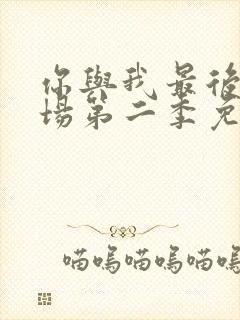 你與我最後
場第二季免
喵嗚喵嗚喵嗚